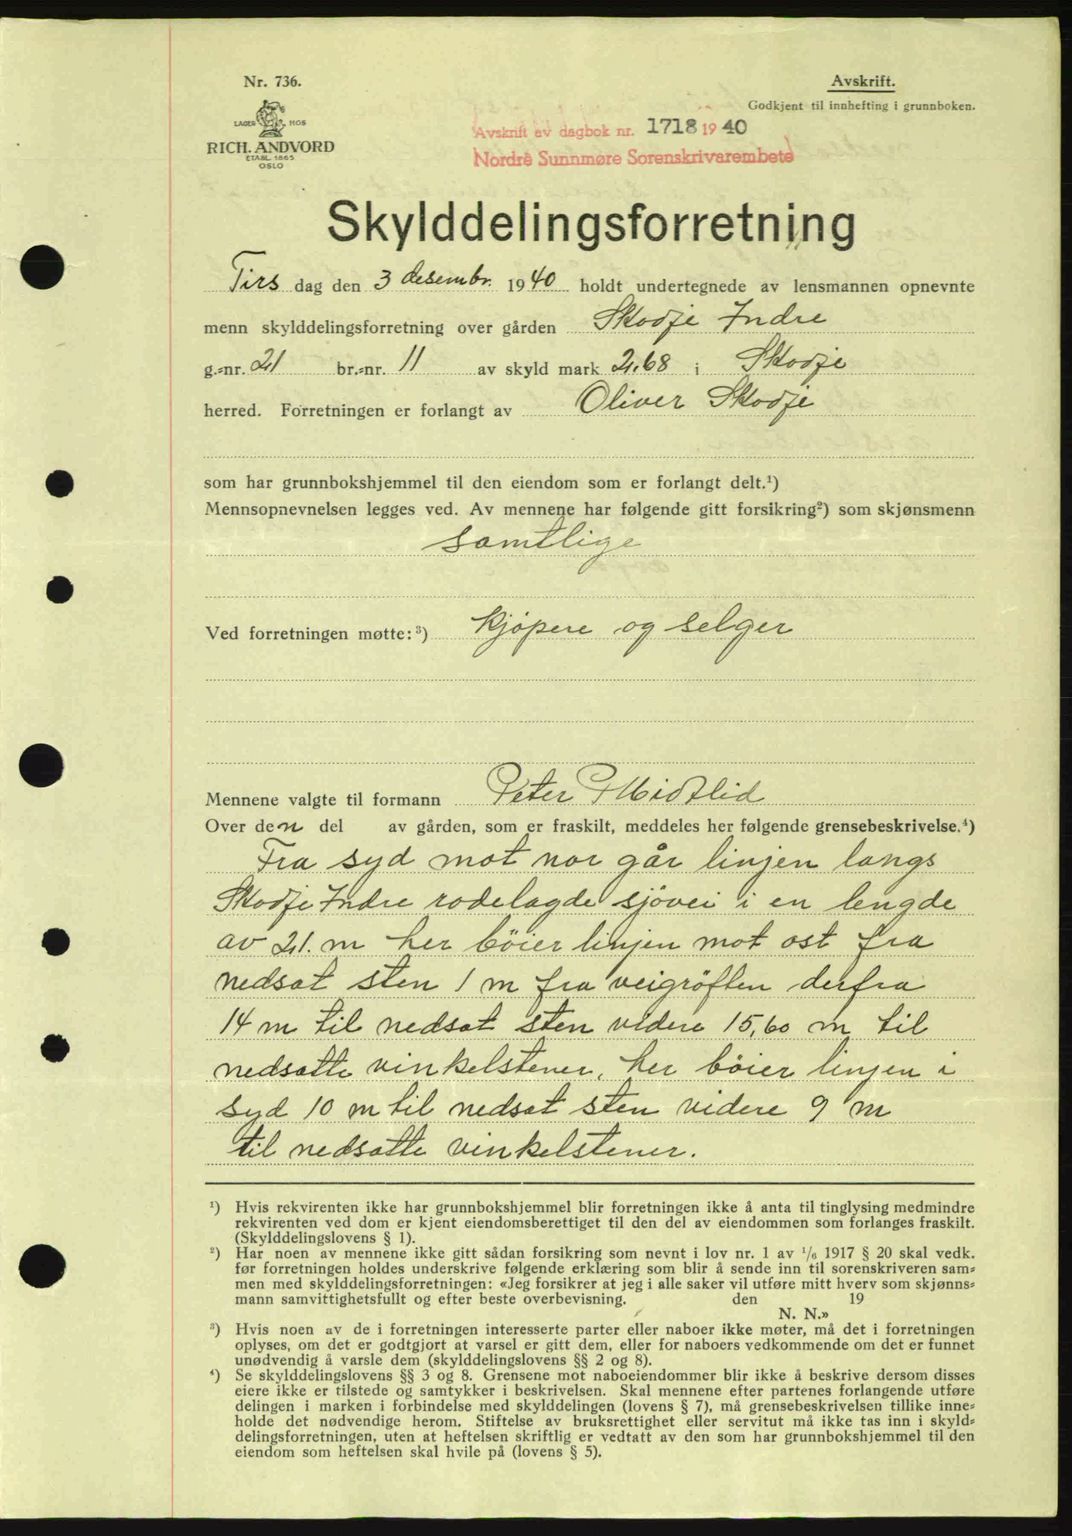 Nr. 736.
LAGER HOS
RICH. ANDVORD
ETABL. 1865
OSLO
Avskrift.
Godkjent til innhefting i grunnboken.
Avskrift av dagbok nr. 1718 1940
Nordre Sunnmøre Sorenskrivarembete
Skylddelingsforretning
Tirs dag den 3 desembr. 1940 holdt undertegnede av lensmannen opnevnte
menn skylddelingsforretning over gården Skodje Indre
g.=nr. 21 br.=nr. 11 av skyld mark 2,68 i Skodje
herred. Forretningen er forlangt av Oliver Skodje
som har grunnbokshjemmel til den eiendom som er forlangt delt.¹)
Mennsopnevnelsen legges ved. Av mennene har følgende gitt forsikring²) som skjønsmenn
samtlige
Ved forretningen møtte:³) Kjøpere og selger
Mennene valgte til formann Peter P Midtlid
Over den del av gården, som er fraskilt, meddeles her følgende grensebeskrivelse.⁴)
Fra syd mot nor går linjen langs
Skodje Indre rodelagde sjövei i en lengde
av 21. m her böier linjen mot ost fra
nedsat sten 1 m fra veigröften derfra
14 m til nedsat sten videre 15,60 m til
nedsatte vinkelstener, her böier linjen i
syd 10 m til nedsat sten videre 9 m
til nedsatte vinkelstener.
¹) Hvis rekvirenten ikke har grunnbokshjemmel blir forretningen ikke å anta til tinglysing medmindre
rekvirenten ved dom er kjent eiendomsberettiget til den del av eiendommen som forlanges fraskilt.
(Skylddelingslovens § 1).
²) Har noen av mennene ikke gitt sådan forsikring som nevnt i lov nr. 1 av ¹/₆ 1917 § 20 skal vedk.
før forretningen holdes underskrive følgende erklæring som blir å sende inn til sorenskriveren sam=
men med skylddelingsforretningen: «Jeg forsikrer at jeg i alle saker vil utføre mitt hverv som skjønns=
mann samvittighetsfullt og efter beste overbevisning. den 19
N. N.»
³) Hvis noen av de i forretningen interesserte parter eller naboer ikke møter, må det i forretningen
oplyses, om det er godtgjort at varsel er gitt dem, eller for naboers vedkommende om det er funnet
unødvendig å varsle dem (skylddelingslovens §§ 2 og 8).
⁴) Se skylddelingslovens §§ 3 og 8. Grensene mot naboeiendommer blir ikke å beskrive dersom disses
eiere ikke er tilstede og samtykker i beskrivelsen. Skal mennene efter partenes forlangende utføre
delingen i marken i forbindelse med skylddelingen (lovens § 7), må grensebeskrivelsen tillike inne=
holde det nødvendige herom. Stiftelse av bruksrettighet eller servitut må ikke tas inn i skyld=
delingsforretningen, uten at heftelsen skriftlig er vedtatt av den som har grunnbokshjemmel til den
eiendom som heftelsen skal hvile på (lovens § 5).